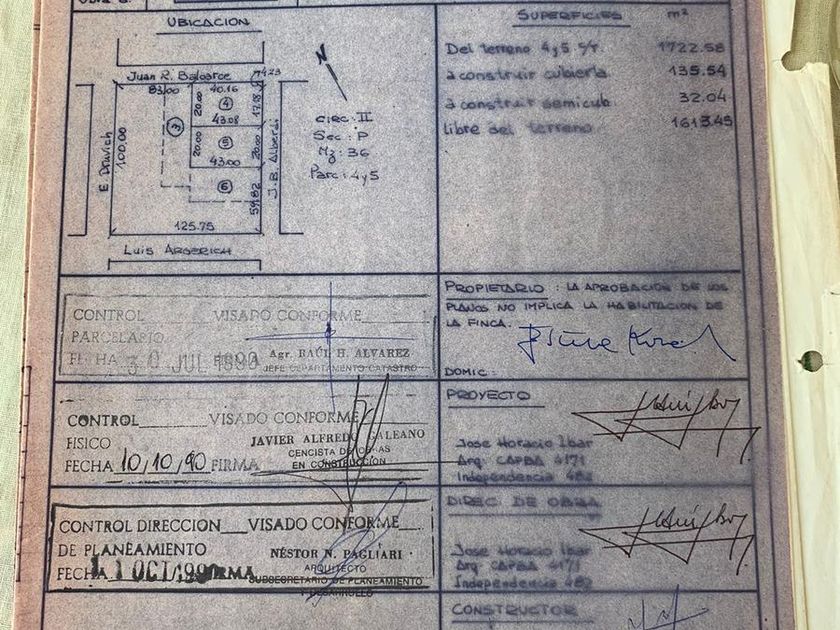 UBICACION
Juan R. Balcarce
83.00
40.16
20.00
4
17.18
3
43.08
20.00
5
20.00
43.00
6
59.82
E. Dravich
100.00
J.B. Alberdi
125.75
Luis ARGERICH
N
CIRC: II
Sec: P
Mz: 36
Parc: 4y5
SUPERFICIES m²
Del terreno 4y5 S/T. 1722.58
a construir cubierta 135.54
a construir semicub. 32.04
libre del terreno 1613.45
CONTROL VISADO CONFORME
PARCELARIO
FECHA 30 JUL 1990 FIRMA Agr. RAÚL H. ALVAREZ
JEFE DEPARTAMENTO CATASTRO
PROPIETARIO : LA APROBACION DE LOS
PLANOS NO IMPLICA LA HABILITACION DE
LA FINCA.
DOMIC:
CONTROL VISADO CONFORME
FISICO JAVIER ALFREDO GALEANO
CENCISTA DE OBRAS
FECHA 10/10/90 FIRMA EN CONSTRUCCION
PROYECTO
Jose Horacio Ibar
Arq. CAPBA 4171
Independencia 482
CONTROL DIRECCION VISADO CONFORME
DE PLANEAMIENTO NÉSTOR N. PAGLIARI
ARQUITECTO
FECHA 11 OCT 1990 FIRMA SUBSECRETARIO DE PLANEAMIENTO
Y DESARROLLO
DIREC. DE OBRA
Jose Horacio Ibar
Arq. CAPBA 4171
Independencia 482
CONSTRUCTOR